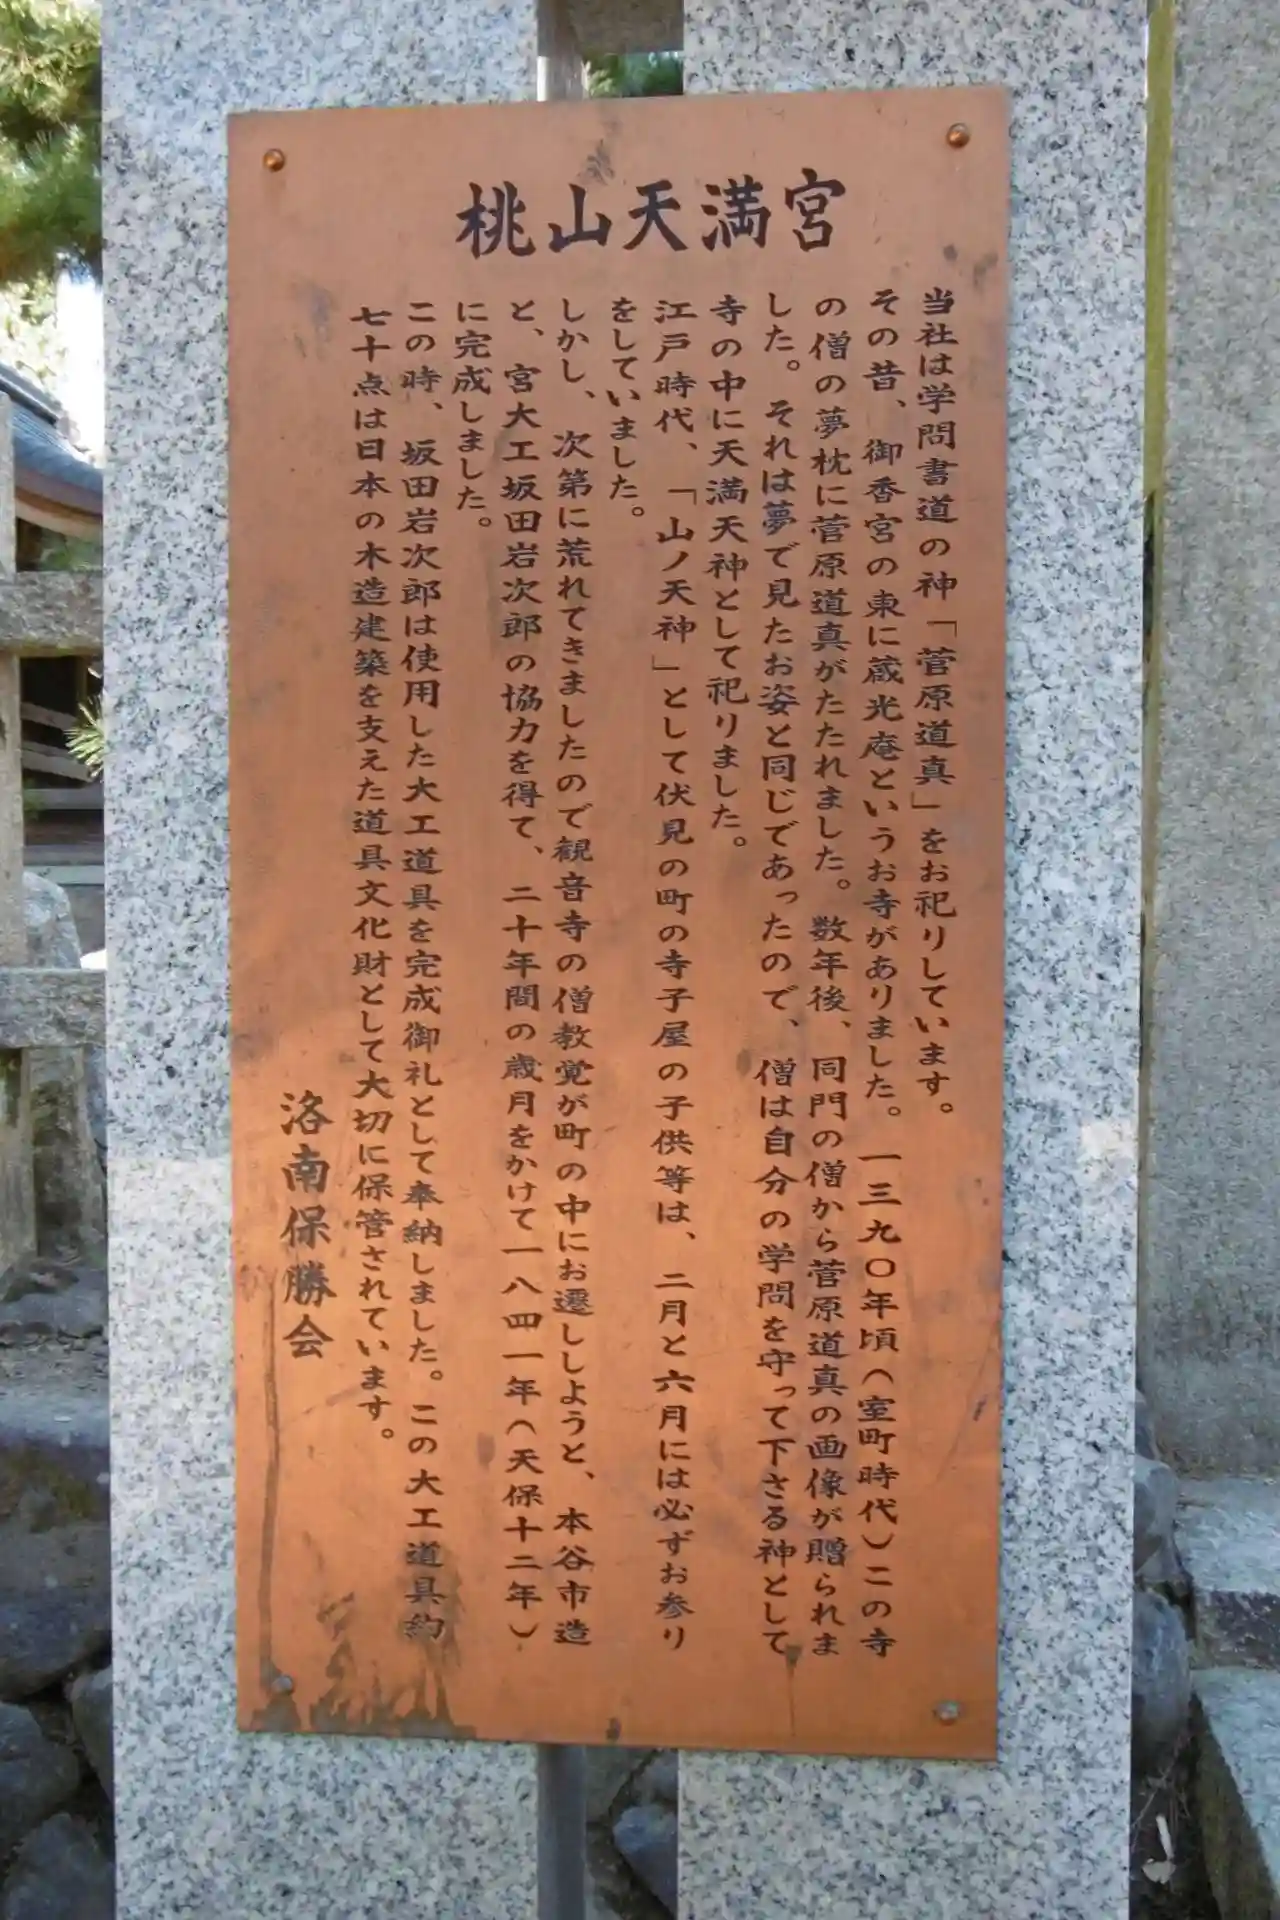 桃山天満宮
当社は学問書道の神「菅原道真」をお祀りしています。
その昔、御香宮の東に蔵光庵というお寺がありました。一三九〇年頃(室町時代)この寺
の僧の夢枕に菅原道真がたたれました。数年後、同門の僧から菅原道真の画像が贈られま
した。それは夢で見たお姿と同じであったので、僧は自分の学問を守って下さる神として
寺の中に天満天神として祀りました。
江戸時代、「山ノ天神」として伏見の町の寺子屋の子供等は、二月と六月には必ずお参り
をしていました。
しかし、次第に荒れてきましたので観音寺の僧教覚が町の中にお遷ししようと、本谷市造
と、宮大工坂田岩次郎の協力を得て、二十年間の歳月をかけて一八四一年(天保十二年)
に完成しました。
この時、坂田岩次郎は使用した大工道具を完成御礼として奉納しました。この大工道具約
七十点は日本の木造建築を支えた道具文化財として大切に保管されています。
洛南保勝会